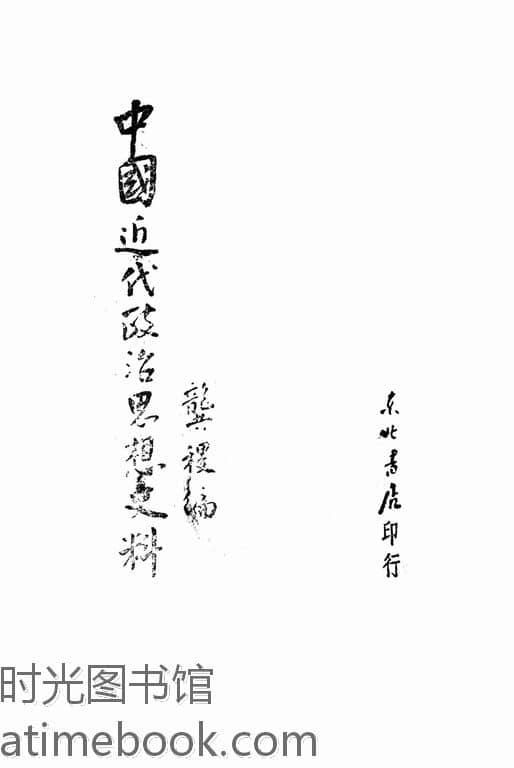 中國近代政治思想史料
龔稷編
东北書店印行
时光图书馆
atimebook.com